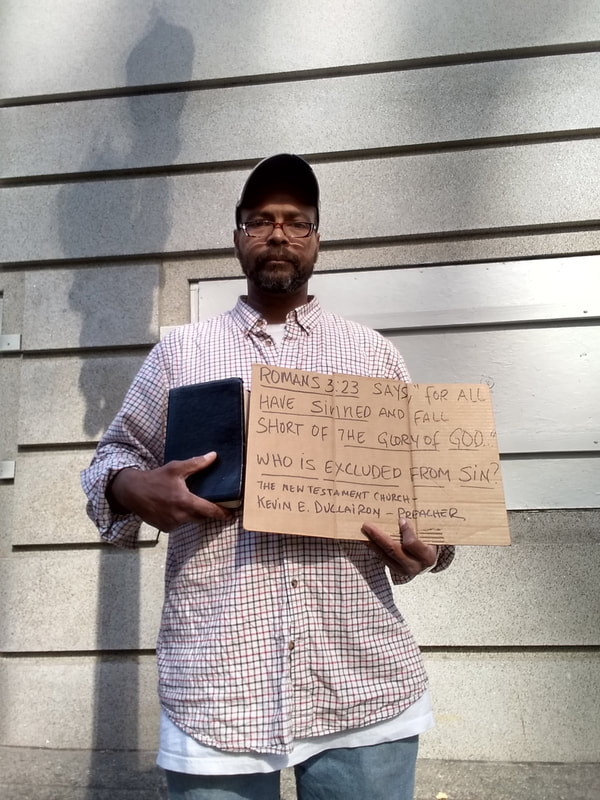 ROMANS 3:23 SAYS, "FOR ALL
HAVE SINNED AND FALL
SHORT OF THE GLORY OF GOD."
WHO IS EXCLUDED FROM SIN?
THE NEW TESTAMENT CHURCH-
KEVIN E. DUCLAIRON - PREACHER